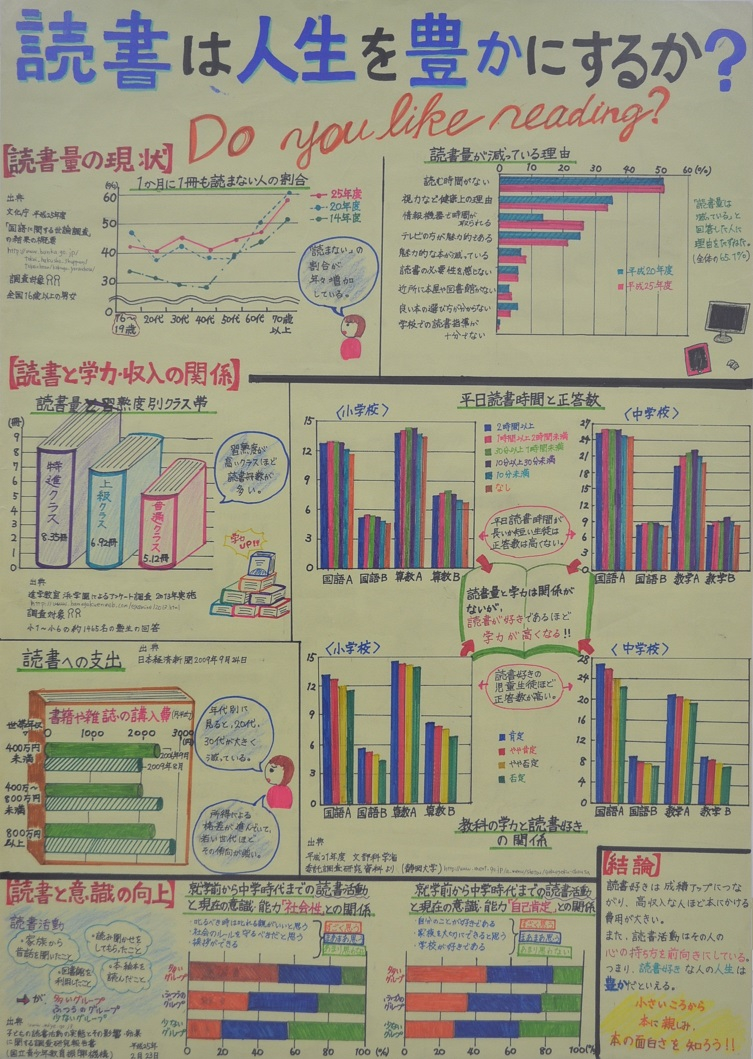 読書は人生を豊かにするか?
Do you like reading?
【読書量の現状】
1か月に1冊も読まない人の割合
出典
文化庁 平成25年度
「国語に関する世論調査」
の結果の概要
調査対象
全国16歳以上の男女
(%)
60
50
40
30
0
25年度
20年度
14年度
16〜19歳 20代 30代 40代 50代 60代 70歳以上
「読まない」の
割合が
年々増加
している。
読書量が減っている理由
0 10 20 30 40 50 60(%)
読む時間がない
視力など健康上の理由
情報機器で時間が
とられる
テレビの方が魅力的である
魅力的な本が減っている
読書の必要性を感じない
近所に本屋や図書館がない
良い本の選び方が分からない
学校での読書指導が
十分でない
平成20年度
平成25年度
"読書量は
減っている"と
回答した人に
理由をたずねた。
【読書と学力・収入の関係】
読書量と習熟度別クラス帯
(冊)
9
8
7
6
5
4
3
2
1
0
特進クラス
8.35冊
上級クラス
6.92冊
普通クラス
5.12冊
習熟度が
高いクラスほど
読書冊数が
多い。
学力UP!!
出典
調査対象
平日読書時間と正答数
〈小学校〉
15
12
9
6
3
0
国語A 国語B 算数A 算数B
2時間以上
1時間以上2時間未満
30分以上1時間未満
10分以上30分未満
10分未満
なし
〈中学校〉
国語A 国語B 数学A 数学B
平日読書時間が
長いか短い生徒は
正答数は高くない。
読書量と学力は関係が
ないが、
読書が好きであるほど
学力が高くなる!!
〈小学校〉
15
12
9
6
3
0
国語A 国語B 算数A 算数B
読書好きの
児童生徒ほど
正答数が高い。
肯定
やや肯定
やや否定
否定
〈中学校〉
28
24
20
16
12
8
4
0
国語A 国語B 数学A 数学B
教科の学力と読書好き
の関係
出典
平成21年度 文部科学省
委託調査研究資料より (静岡大学)
読書への支出
出典
日本経済新聞2009年9月24日
書籍や雑誌の購入費
世帯年収
0 1000 2000 3000
(円)
400万円
未満
400万〜
800万円
未満
800万円
以上
年代別に
見ると、20代、
30代が大きく
減っている。
所得による
格差が進んでいて、
若い世代ほど
その傾向が強い。
【読書と意識の向上】
読書活動
・家族から
昔話を聞いたこと
・読み聞かせを
してもらったこと
・図書館を
利用したこと
・本・絵本を
読んだこと
➡が
多いグループ
ふつうのグループ
少ないグループ
出典
子どもの読書活動の実態とその影響・効果
に関する調査研究報告書
(国立青少年教育振興機構)
平成25年
2月23日
就学前から中学時代までの読書活動
と現在の意識・能力"社会性"との関係
・叱るべき時は叱れる親がいいと思う
・社会のルールを守るべきだと思う
・挨拶ができる
とても思う
まあまあ思う
あまり思わない
多い
グループ
ふつうの
グループ
少ない
グループ
0 20 40 60 80 100(%)
就学前から中学時代までの読書活動
と現在の意識・能力"自己肯定"との関係
・自分のことが好きである
・家族を大切にできると思う
・学校が好きである
とても思う
まあまあ思う
あまり思わない
多い
グループ
ふつうの
グループ
少ない
グループ
0 20 40 60 80 100(%)
【結論】
読書好きは成績アップにつな
がり、高収入な人ほど本にかける
費用が大きい。
また、読書活動はその人の
心の持ち方を前向きにしている。
つまり、読書好きな人の人生は
豊かだといえる。
小さいころから
本に親しみ、
本の面白さを知ろう!!